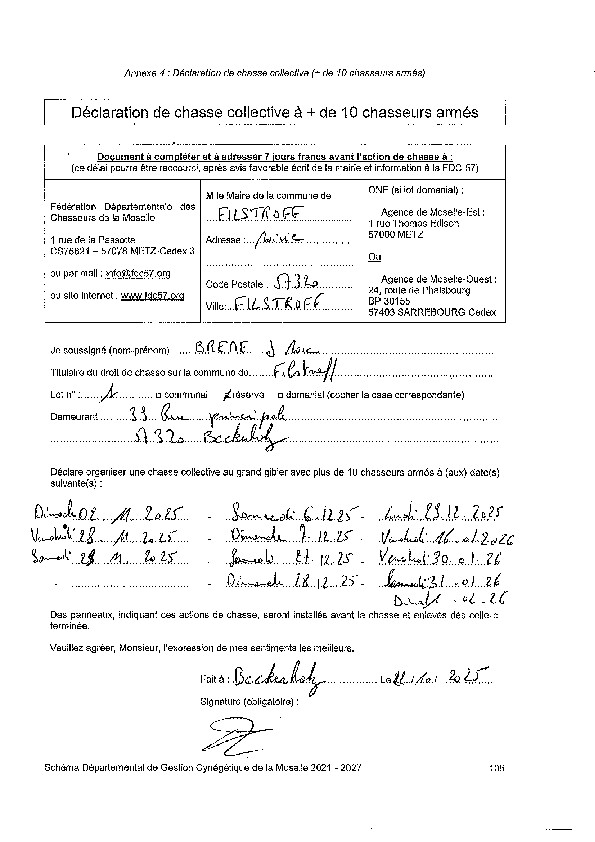 Annexe 4 : Déclaration de chasse collective (+ de 10 chasseurs armés)
Déclaration de chasse collective à + de 10 chasseurs armés
Document à compléter et à adresser 7 jours francs avant l'action de chasse à :
(ce délai pourra être raccourci, après avis favorable écrit de la mairie et information à la FDC 57)
Fédération Départementale des
Chasseurs de la Moselle
1 rue de la Passotte
CS75821 – 57078 METZ-Cedex 3
ou par mail : info@fdc57.org
ou site Internet : www.fdc57.org
M le Maire de la commune de
FILSTROFF
Adresse : Mairie
Code Postale : 57320
Ville: FILSTROFF
ONF (si lot domanial) :
Agence de Moselle-Est :
1 rue Thomas Edison
57000 METZ
Ou
Agence de Moselle-Ouest :
24, route de Phalsbourg
BP 30155
57403 SARREBOURG Cedex
Je soussigné (nom-prénom) BREME J Marc
Titulaire du droit de chasse sur la commune de Filstroff
Lot n° : 1 communal réserve domanial (cocher la case correspondante)
Demeurant 33 Rue principale
57320 Beckerholtz
Déclare organiser une chasse collective au grand gibier avec plus de 10 chasseurs armés à (aux) date(s)
suivante(s) :
Dimache 02 11 2025 - Samedi 6.12.25 - Lundi 29.12.2025
Vendredi 28 11 2025 - Dimanche 7.12.25 - Vendredi 16.01.2026
Samedi 11 2025 - Samedi 27.12.25 - Vendredi 30.01.26
- - Dimanche 28.12.25 - Samedi 31.01.26
02.26
Des panneaux, indiquant des actions de chasse, seront installés avant la chasse et enlevés dès celle-ci
terminée.
Veuillez agréer, Monsieur, l'expression de mes sentiments les meilleurs.
Fait à : Beckerholtz Le 2025
Signature (obligatoire) :
Schéma Départemental de Gestion Cynégétique de la Moselle 2021 - 2027